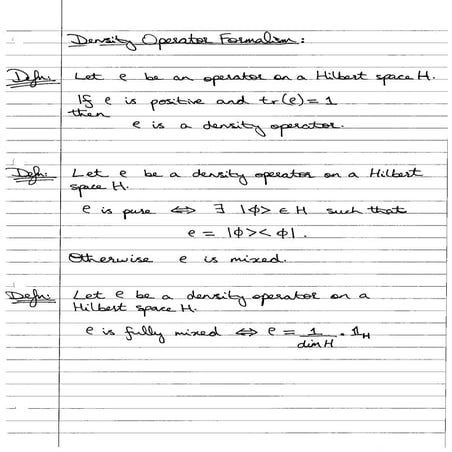 Density Operator Formalism:
Defn: Let ρ be an operator on a Hilbert space H.
If ρ is positive and tr(ρ) = 1
then
ρ is a density operator.
Defn: Let ρ be a density operator on a Hilbert
space H.
ρ is pure ⇔ ∃ |ϕ> ∈ H such that
ρ = |ϕ><ϕ|.
Otherwise ρ is mixed.
Defn: Let ρ be a density operator on a
Hilbert space H.
ρ is fully mixed ⇔ ρ = 1/dim H . 𝟙_H